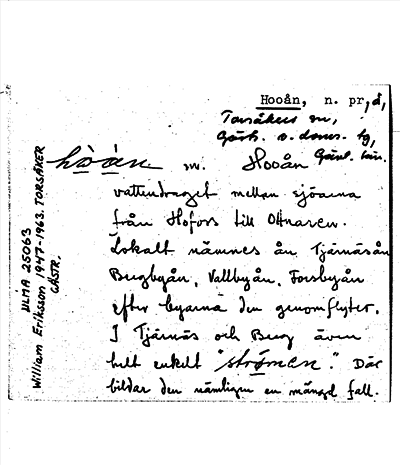 Hooån, n. pr., å,
Torsåkers sn,
Gästr. ö. doms. tg,
Gävl. län.
hòàn sn. Hooån
vattendraget mellan sjöarna
från Hofors till Ottnaren.
Lokalt nämnes ån Tjärnäsån
Bergbyån, Vallbyån, Forsbyån
efter byarna den genomflyter.
I Tjärnäs och Berg även
helt enkelt "strömen". Där
bildar den nämligen en mängd fall.
ULMA 25063
William Eriksson 1947-1963. TORSÅKER
GÄSTR.